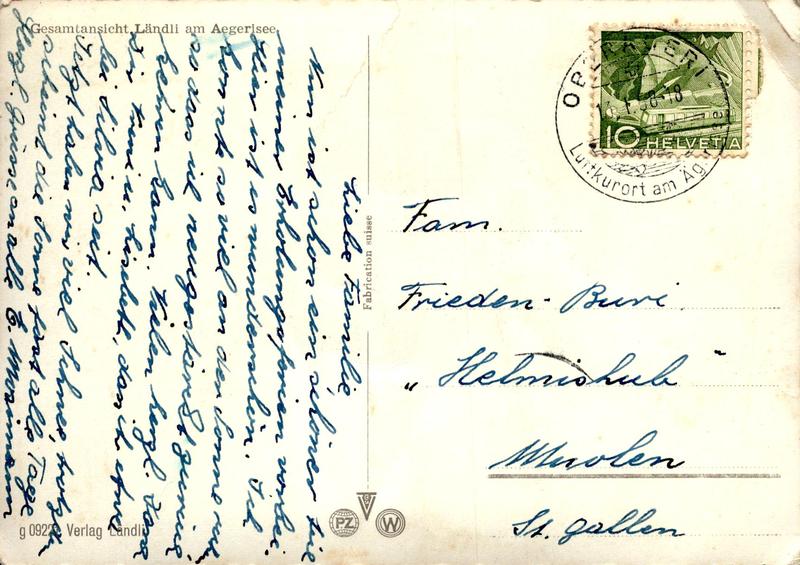 Gesamtansicht Ländli am Aegerisee
Liebe Familie
Nun ist schon ein schöner Teil
meiner Erholungsferien vorbei.
Hier ist es wunderschön. Ich
konnte so viel an der Sonne ruhn,
so dass ich neugestärkt
kehren kann. Vielen herzl. Dank
bei Silvia seit.
Jetzt haben wir viel Schnee, trotzdem
scheint die Sonne fast alle Tage
Herzl. Grüsse an alle E.
g 0922 Verlag Ländli
Fabrication suisse
PZ
W
OBERAEGERI
Luftkurort am Äg
10 HELVETIA
Fam.
Frieden-Buri
"Helmishub"
Muolen
St. Gallen